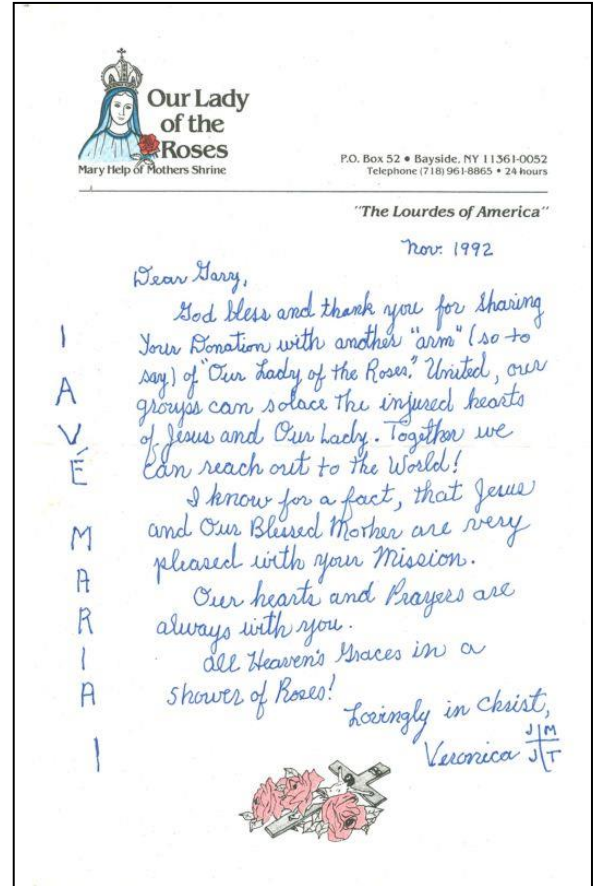 Our Lady
of the
Roses
Mary Help of Mothers Shrine
P.O. Box 52 • Bayside, NY 11361-0052
Telephone (718) 961-8865 • 24 hours
"The Lourdes of America"
Nov. 1992
Dear Gary,
God bless and thank you for sharing
Your Donation with another "arm" (so to
say) of "Our Lady of the Roses." United, our
groups can solace the injured hearts
of Jesus and Our Lady. Together we
Can reach out to the World!
I know for a fact, that Jesus
and Our Blessed Mother are very
pleased with your Mission.
Our hearts and Prayers are
always with you.
All Heaven's Graces in a
shower of Roses!
Lovingly in Christ,
Veronica J M
J T
! AVÉ MARIA !